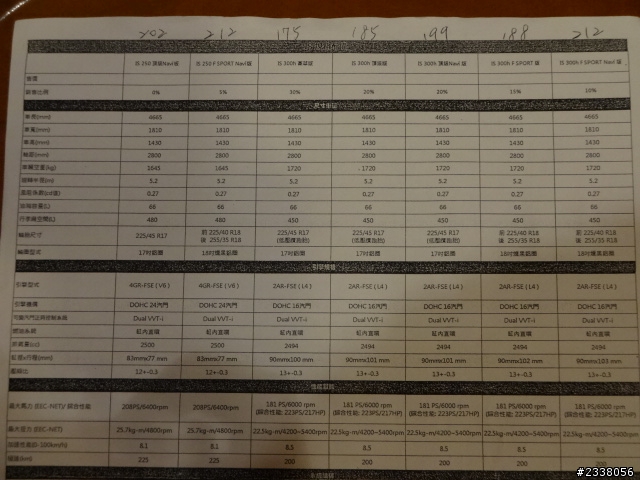 202 212 175 185 199 188 212
IS 250 頂級Navi版 IS 250 F SPORT Navi 版 IS 300h 菁英版 IS 300h 頂級版 IS 300h 頂級Navi 版 IS 300h F SPORT 版 IS 300h F SPORT Navi 版
銷售比例 0% 5% 30% 20% 20% 15% 10%
車長(mm) 4665 4665 4665 4665 4665 4665 4665
車寬(mm) 1810 1810 1810 1810 1810 1810 1810
車高(mm) 1430 1430 1430 1430 1430 1430 1430
軸距(mm) 2800 2800 2800 2800 2800 2800 2800
車輛空重(kg) 1645 1645 1720 1720 1720 1720 1720
迴轉半徑(m) 5.2 5.2 5.2 5.2 5.2 5.2 5.2
風阻係數(cd值) 0.27 0.27 0.27 0.27 0.27 0.27 0.27
油箱容量(L) 66 66 66 66 66 66 66
行李廂空間(L) 480 480 450 450 450 450 450
輪胎尺寸 225/45 R17 前 225/40 R18 後 255/35 R18 225/45 R17 (低壓續跑胎) 225/45 R17 (低壓續跑胎) 225/45 R17 (低壓續跑胎) 前 225/40 R18 後 255/35 R18 前 225/40 R18 後 255/35 R18
輪圈型式 17吋鋁圈 18吋燻黑鋁圈 17吋鋁圈 17吋鋁圈 17吋鋁圈 18吋燻黑鋁圈 18吋燻黑鋁圈
引擎規格
引擎型式 4GR-FSE ( V6 ) 4GR-FSE ( V6 ) 2AR-FSE ( L4 ) 2AR-FSE ( L4 ) 2AR-FSE ( L4 ) 2AR-FSE ( L4 ) 2AR-FSE ( L4 )
引擎機構 DOHC 24汽門 DOHC 24汽門 DOHC 16汽門 DOHC 16汽門 DOHC 16汽門 DOHC 16汽門 DOHC 16汽門
Dual VVT-i Dual VVT-i Dual VVT-i Dual VVT-i Dual VVT-i Dual VVT-i Dual VVT-i
燃油系統 缸內直噴 缸內直噴 缸內直噴 缸內直噴 缸內直噴 缸內直噴 缸內直噴
排氣量(cc) 2500 2500 2494 2494 2494 2494 2494
缸徑x行程(mm) 83mmx77 mm 83mmx77 mm 90mmx100 mm 90mmx101 mm 90mmx101 mm 90mmx102 mm 90mmx103 mm
壓縮比 12+-0.3 12+-0.3 13+-0.3 13+-0.3 13+-0.3 13+-0.3 13+-0.3
最大馬力 (EEC-NET)/ 綜合性能 208PS/6400rpm 208PS/6400rpm 181 PS/6000 rpm (綜合性能: 223PS/217HP) 181 PS/6000 rpm (綜合性能: 223PS/217HP) 181 PS/6000 rpm (綜合性能: 223PS/217HP) 181 PS/6000 rpm (綜合性能: 223PS/217HP) 181 PS/6000 rpm (綜合性能: 223PS/217HP)
最大扭力 (EEC-NET) 25.7kg-m/4800rpm 25.7kg-m/4800rpm 22.5kg-m/4200~5400rpm 22.5kg-m/4200~5400rpm 22.5kg-m/4200~5400rpm 22.5kg-m/4200~5400rpm 22.5kg-m/4200~5400rpm
加速性能(0-100km/h) 8.1 8.1 8.5 8.5 8.5 8.5 8.5
極速(km) 225 225 200 200 200 200 200
#2338056